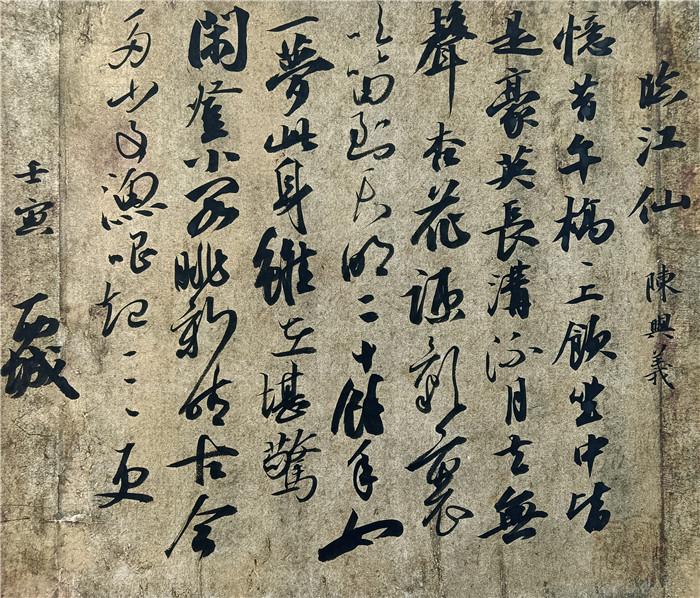 臨江仙
陳與義
憶昔午橋〻上飲坐中皆
是豪英長溝流月去無
聲杏花疏影裏
吹笛到天明二十餘年如
一夢此身雖在堪驚
閑登小閣眺新晴古今
多少事漁唱起三更
壬寅
西城